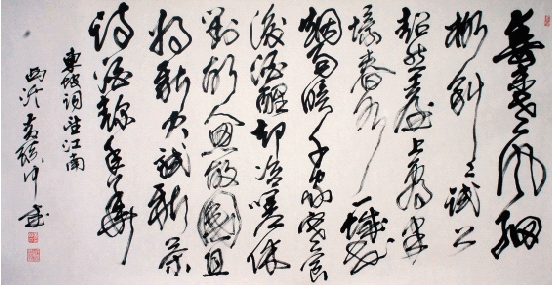 春未老風細
柳斜斜試上
超然臺上看半
壕春水一城花
烟雨暗千家寒食
後酒醒却咨嗟休
對故人思故國且
將新火試新茶
詩酒趁年華
東坡詞望江南